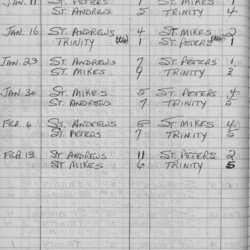 JAN. 11 ST. PETERS 1 ST. MIKES 1
ST. ANDREWS 5 TRINITY 4
JAN. 16 ST. ANDREWS 4 ST. MIKES 2
TRINITY 1 ST. PETERS 1
JAN. 23 ST. ANDREWS 7 ST. PETERS 1
ST. MIKES 9 TRINITY 3
JAN. 30 ST. MIKES 5 ST. PETERS 4
ST. ANDREWS 7 TRINITY 5
FEB. 6 ST. ANDREWS 5 ST. MIKES 4
ST. PETERS 7 TRINITY 5
FEB. 13 ST. ANDREWS 11 ST. PETERS 2
ST. MIKES 6 TRINITY 5